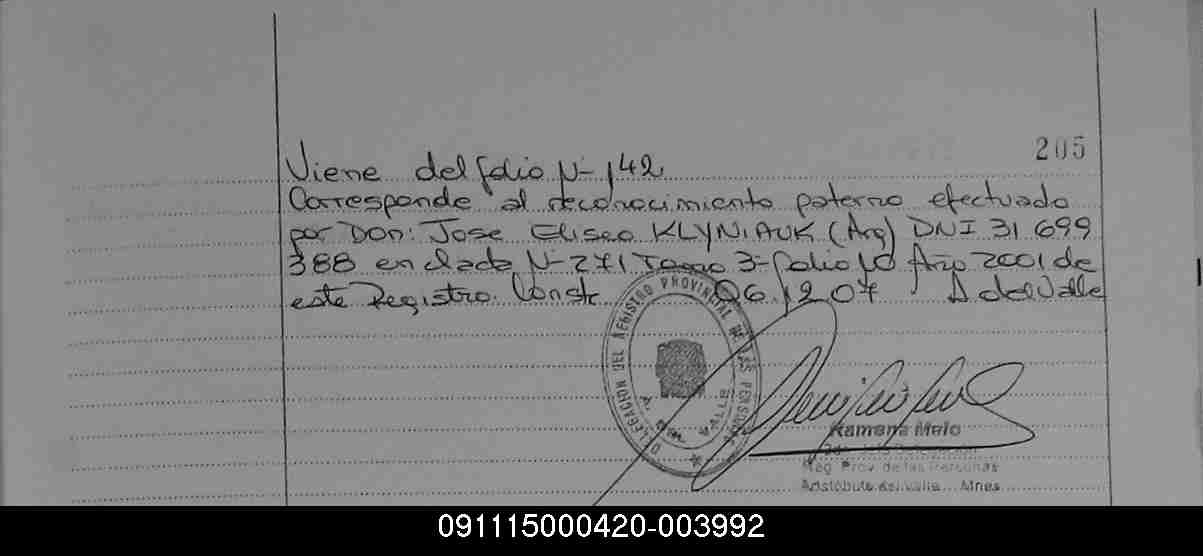 205
Viene del folio Nº 142
Corresponde al reconocimiento paterno efectuado
por Don: Jose Eliseo KLYNIAUK (Arg) DNI 31 699
388 en el acta Nº 271 Tomo 3º folio 10 Año 2001 de
este Registro. Const. 06 1207 A del Valle
DELEGACION DEL REGISTRO PROVINCIAL DE LAS PERSONAS
A. DEL VALLE
Ramona Melo
Reg. Prov. de las Personas
Aristóbulo del Valle Mnes
091115000420-003992